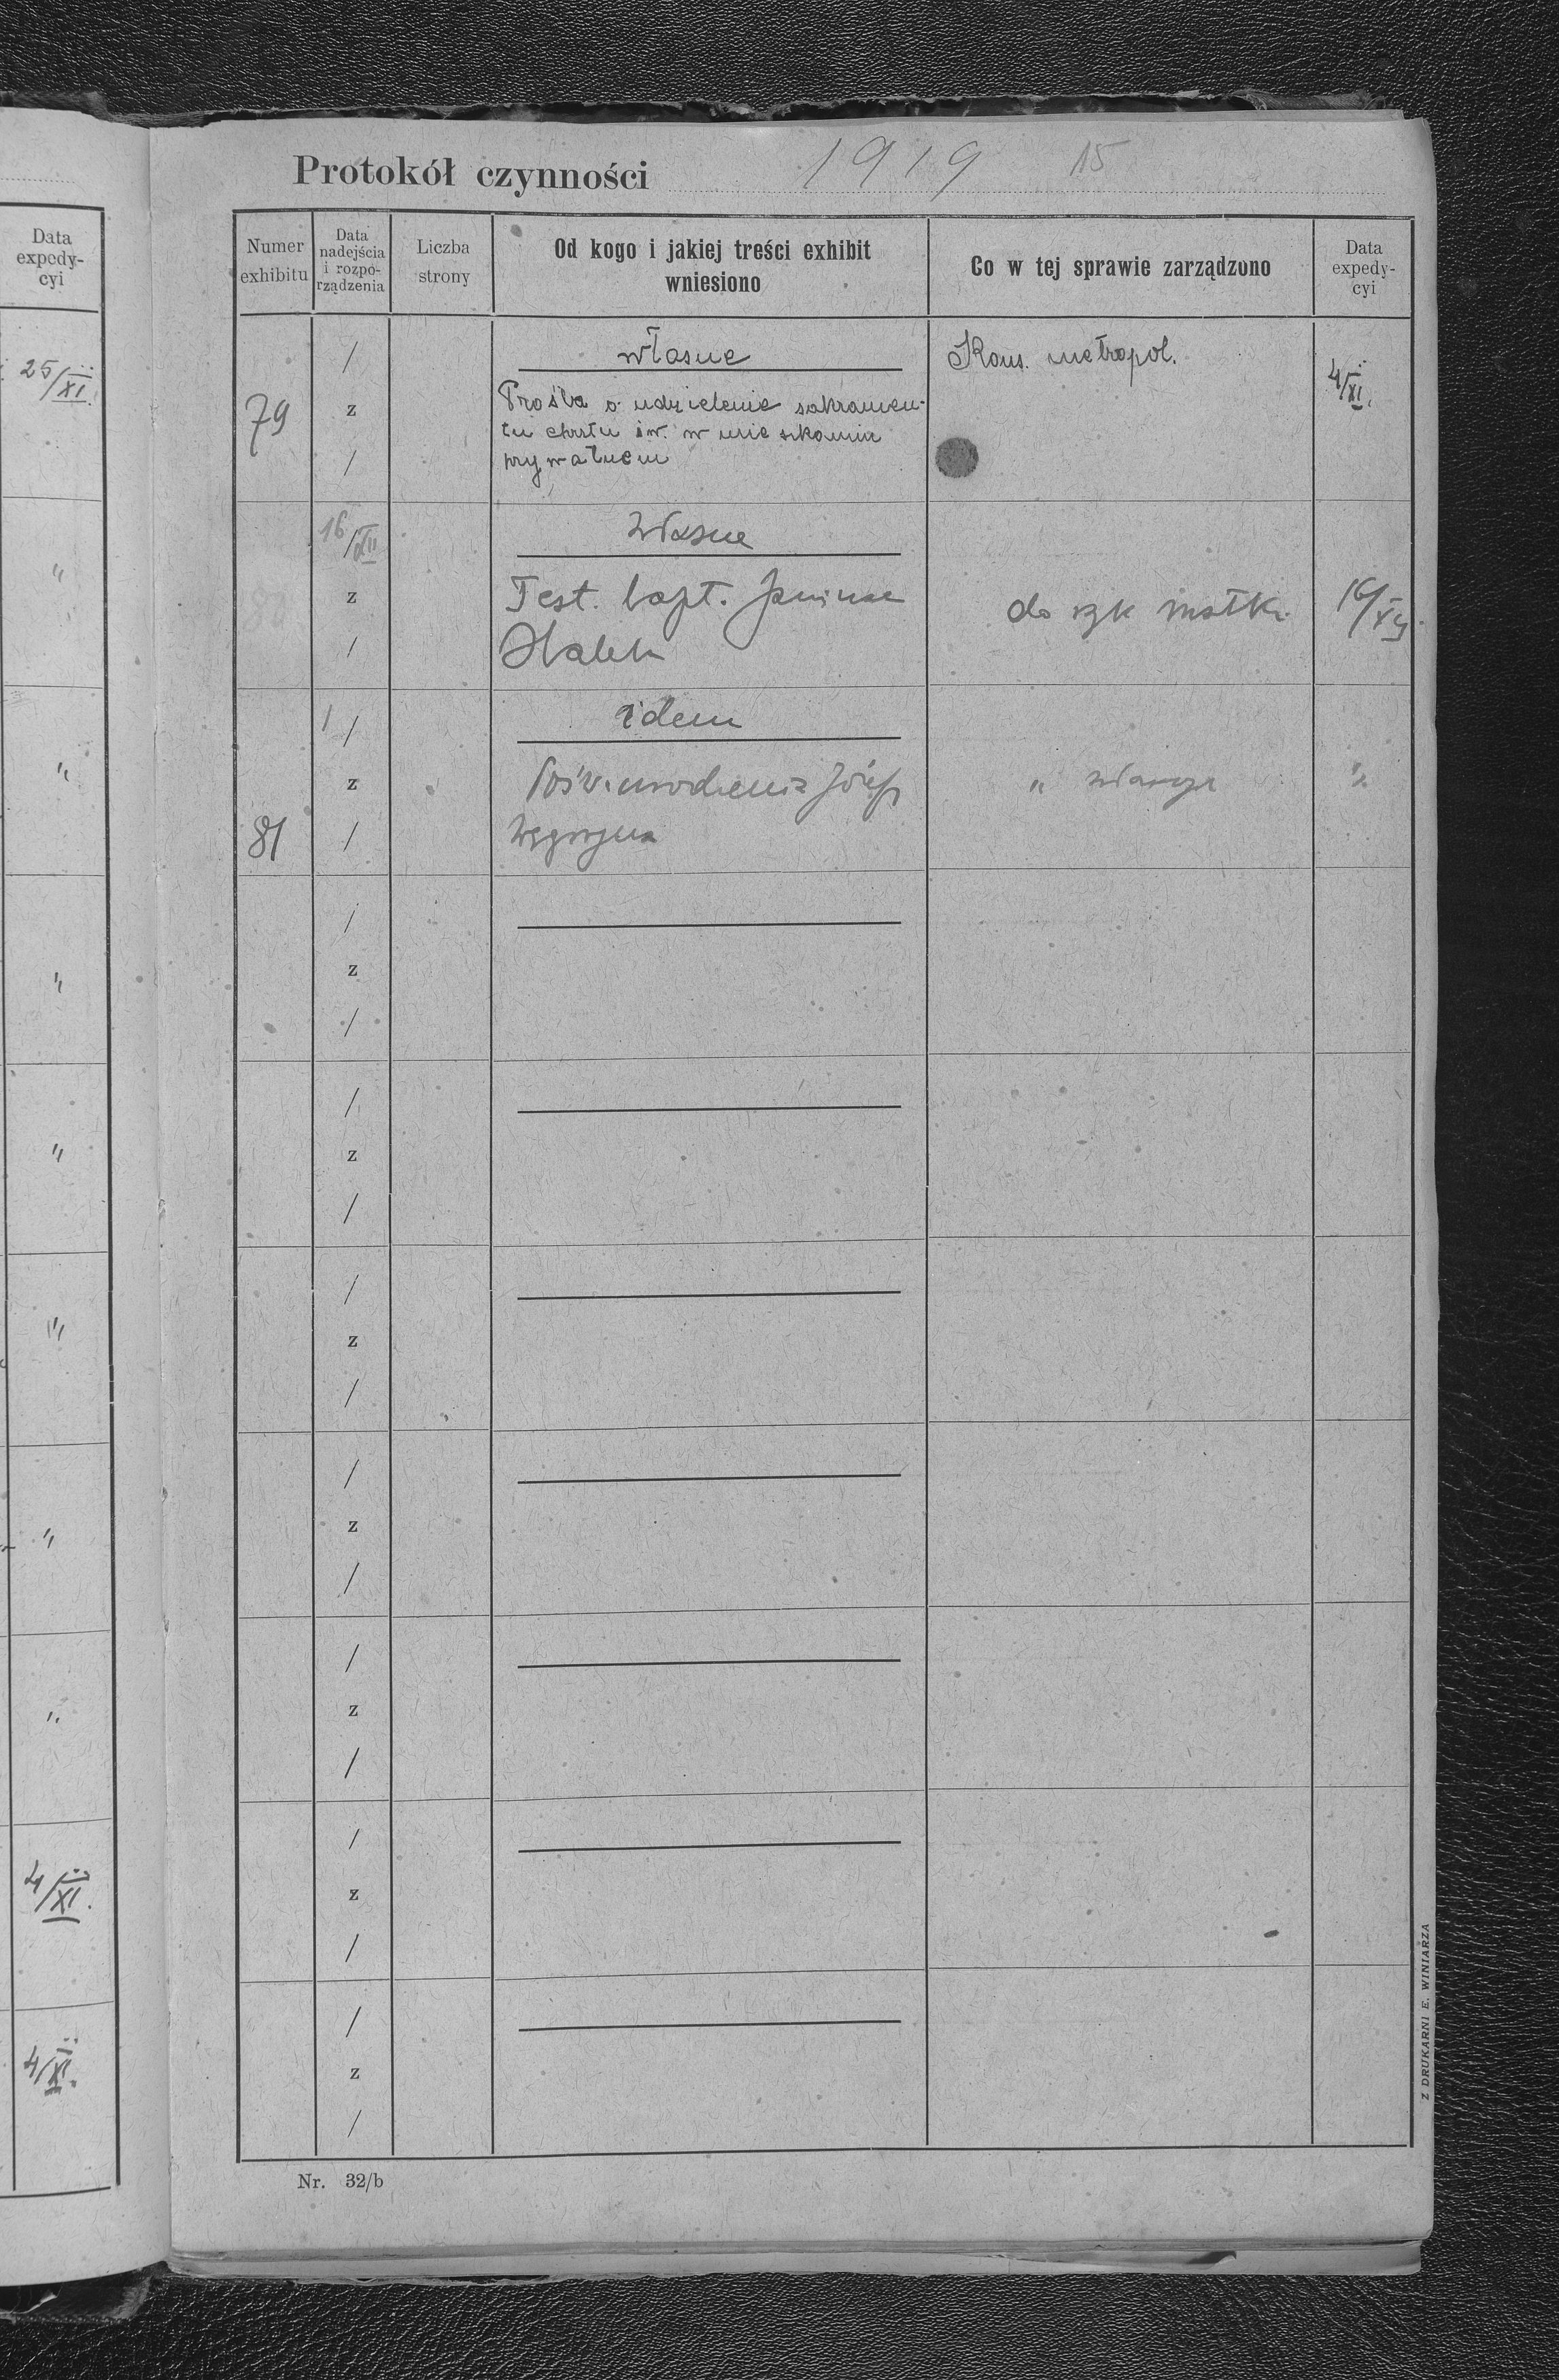 Data
expedy-
cyi
25/XI.
"
"
"
"
"
"
"
4/XI.
4/XI.
Protokół czynności 1919 15
Numer
exhibitu
Data
nadejścia
i rozpo-
rządzenia
Liczba
strony
Od kogo i jakiej treści exhibit
wniesiono
Co w tej sprawie zarządzono
Data
expedy-
cyi
79
/
z
/
własne
Prośba o udzielenie sakramen-
tu chrztu św. w mieszkaniu
prywatnem
Kons. metropol.
4/XI.
80
16/XII
z
/
Własne
Test. bapt. Janina
do rąk matki
16/XII
81
1 /
z
/
idem
Pośw. urodzenia Józef
Węgrzyna
"
"
/
z
/
/
z
/
/
z
/
/
z
/
/
z
/
/
z
/
/
z
/
Nr. 32/b
Z DRUKARNI E. WINIARZA